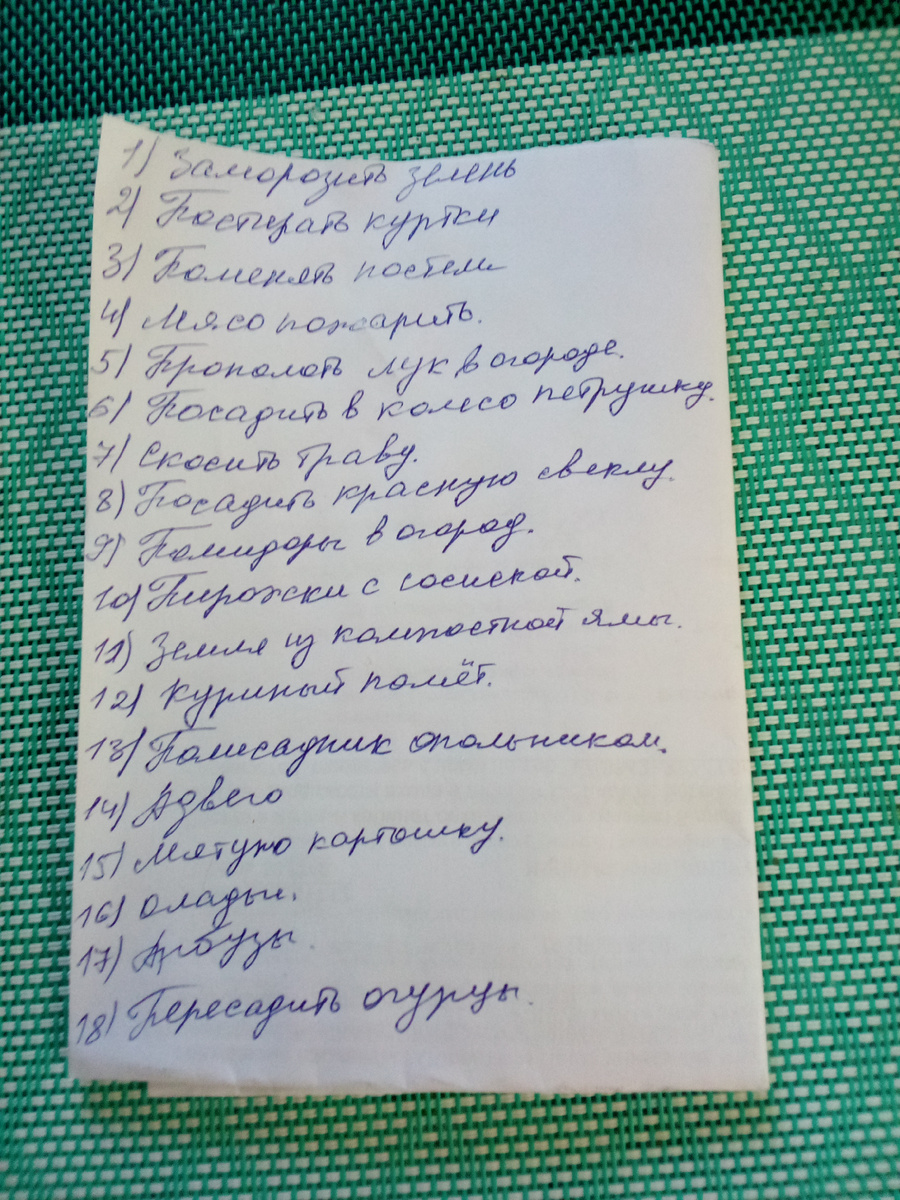 1) Заморозить зелень
2) Постирать куртки
3) Поменять постели
4) Мясо пожарить.
5) Прополоть лук в огороде.
6) Посадить в колесо петрушку.
7) Скосить траву.
8) Посадить красную свеклу.
9) Помидоры в огород.
10) Пирожки с сосиской.
11) Земля из компостной ямы.
12) Куриный помёт.
13) Полисадник опольником.
14) Адвего
15) Мятую картошку.
16) Оладьи.
17) Арбузы.
18) Пересадить огурцы.